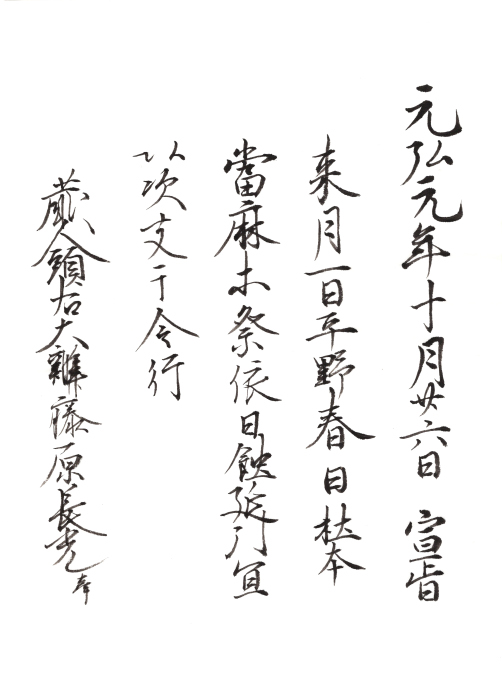 元弘元年十月廿六日 宣旨
来月一日平野春日杜本
當麻等祭依日蝕延行宜
以次支干令行
蔵人頭右大辨藤原長光奉